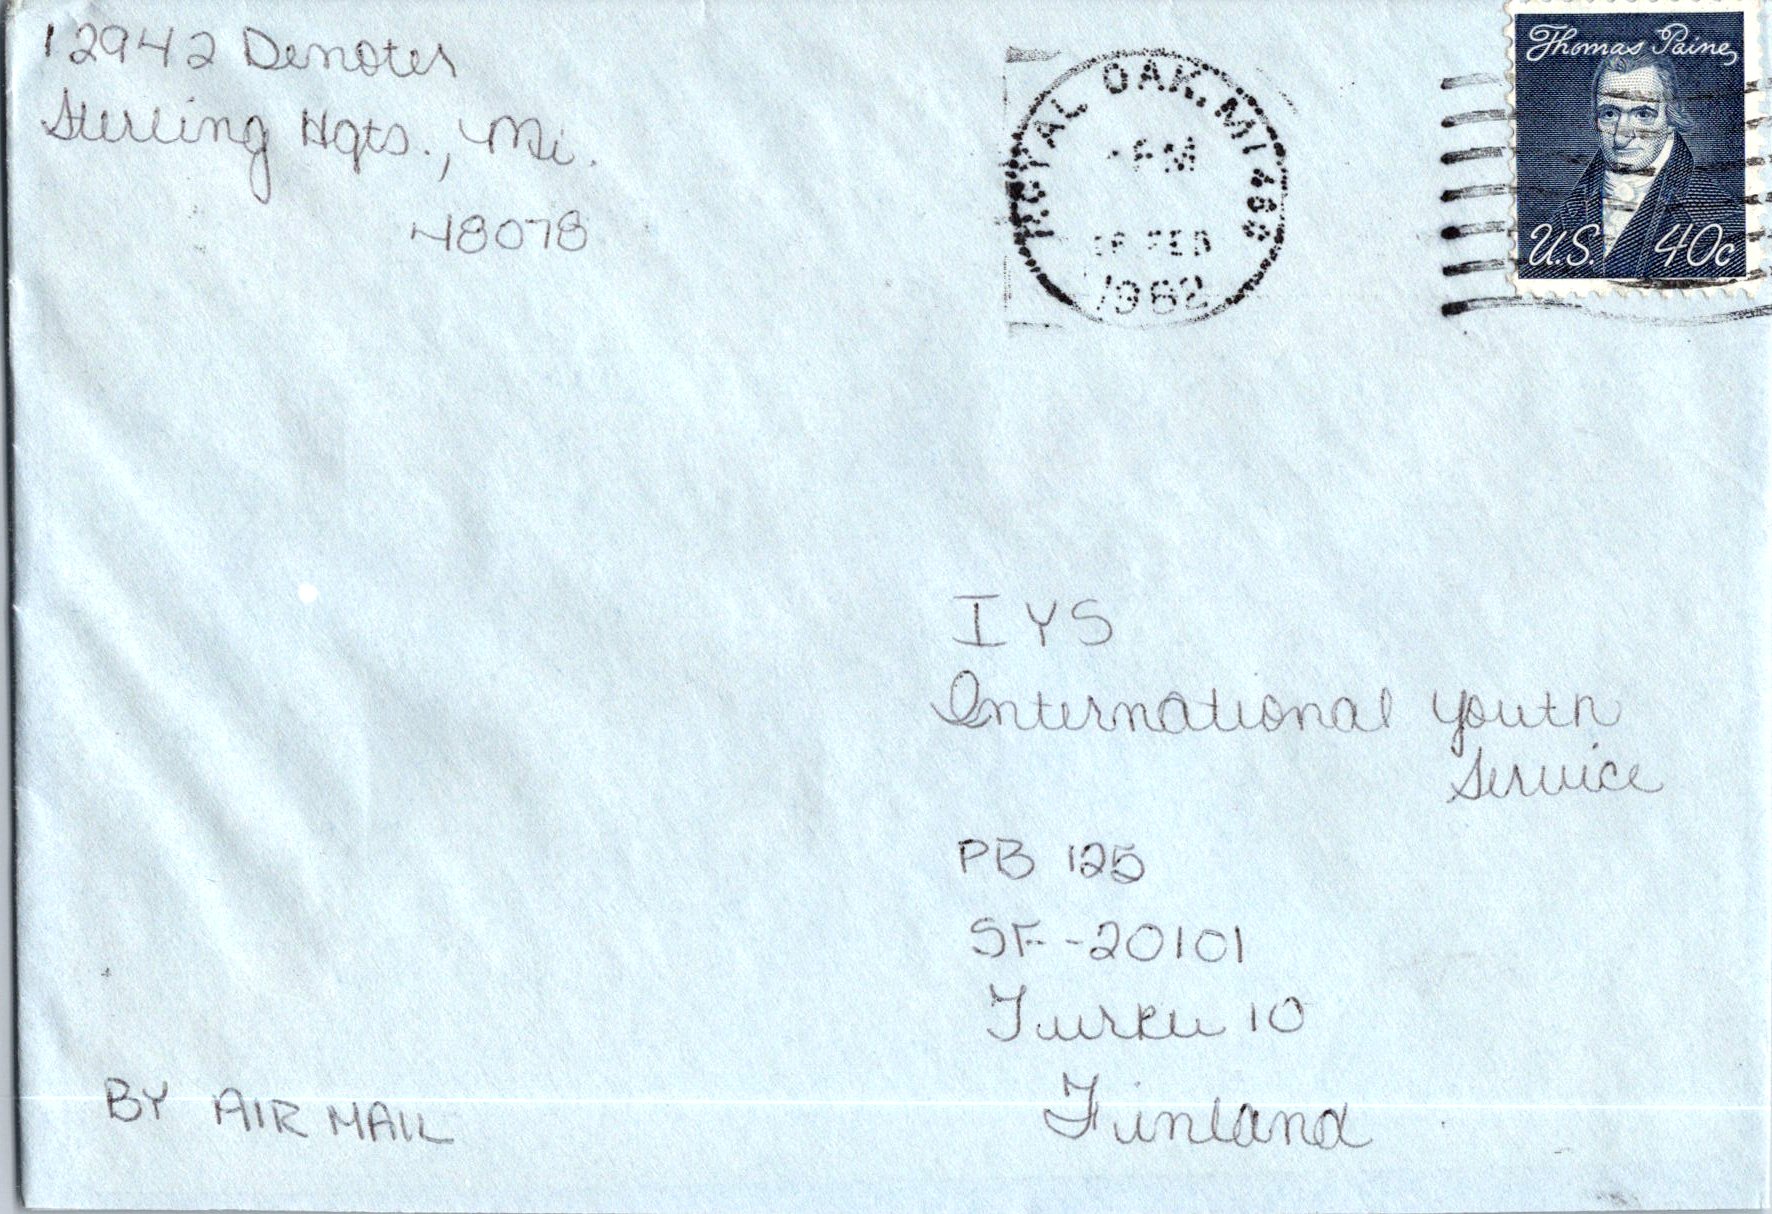 12942 Denoter
Sterling Hgts., Mi.
48078
ROYAL OAK, MI 480
PM
FEB
1982
Thomas Paine
U.S. 40c
IYS
International Youth
Service
PB 125
SF-20101
Turku 10
Finland
BY AIR MAIL